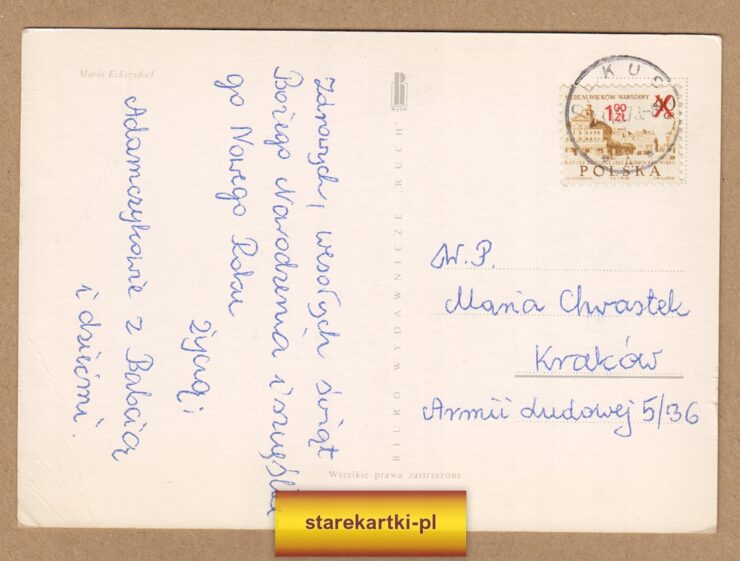 Maria Eckersdorf
Zdrowych, wesołych świąt
Bożego Narodzenia i szczęśliwe
go Nowego Roku
życzą:
Adamczykowie z Babcią
i dziećmi.
BIURO WYDAWNICZE „RUCH”
RUCH
Wszelkie prawa zastrzeżone
LKUS
WIEKÓW WARSZAWY
1 00 ZŁ
10 GR
POLSKA
W.P.
Maria Chwastek
Kraków
Armii Ludowej 5/36
starekartki-pl